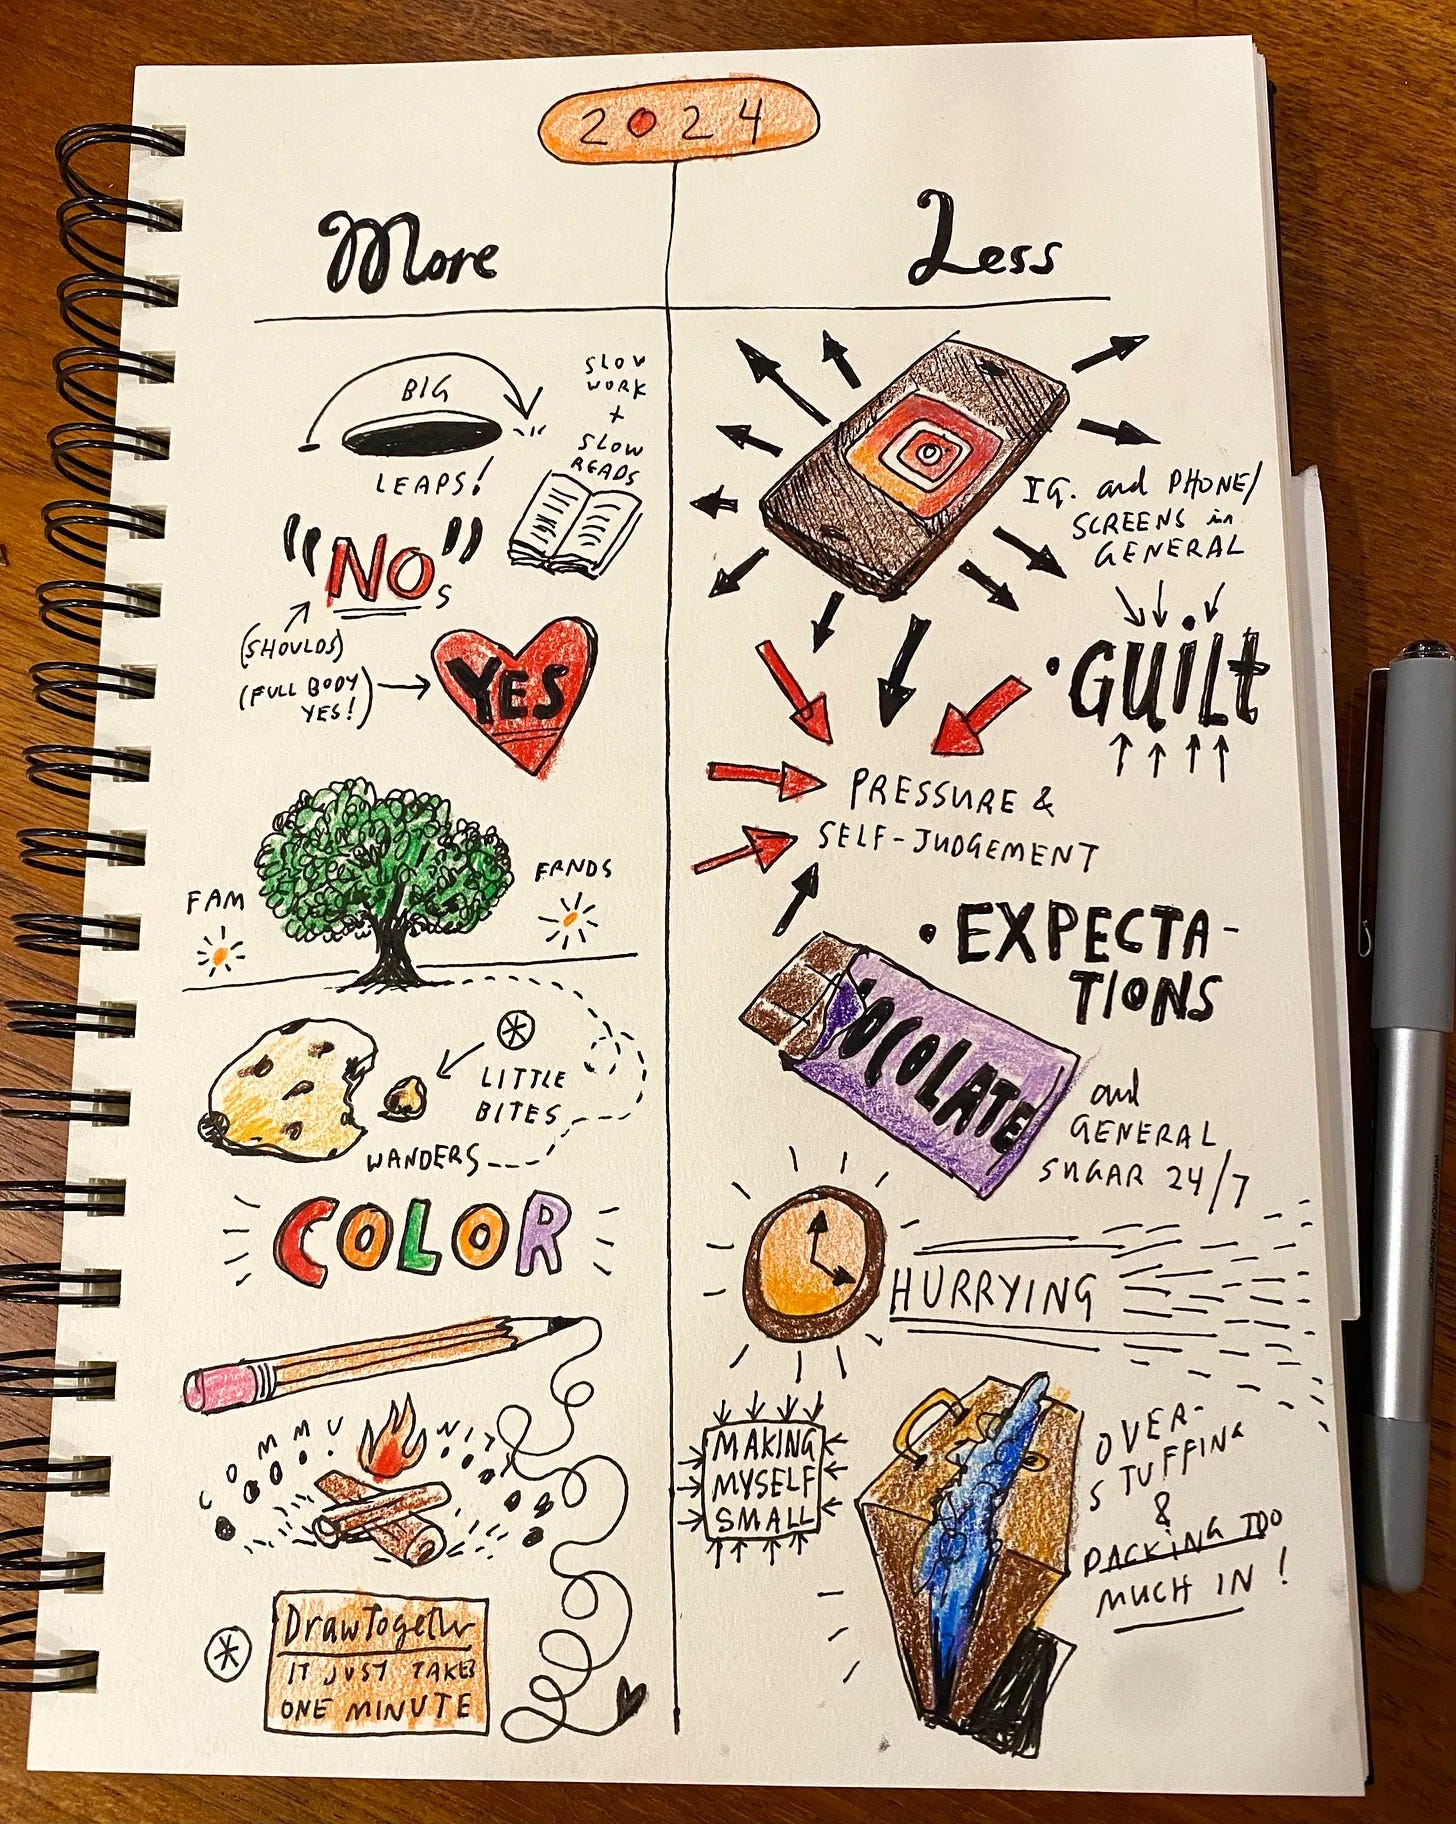 2024
More
BIG
LEAPS!
SLOW
WORK
+
SLOW
READS
"NO"s
(SHOULDS)
(FULL BODY
YES!)
YES
FAM
FRNDS
LITTLE
BITES
WANDERS
COLOR
COMMUNITY
DrawTogether
IT JUST TAKES
ONE MINUTE
Less
IG. and PHONE/
SCREENS in
GENERAL
GUILt
PRESSURE &
SELF-JUDGEMENT
• EXPECTA-
TIONS
OCOLATE
and
GENERAL
SUGAR 24/7
HURRYING
MAKING
MYSELF
SMALL
OVER-
STUFFING
&
PACKING TOO
MUCH IN!